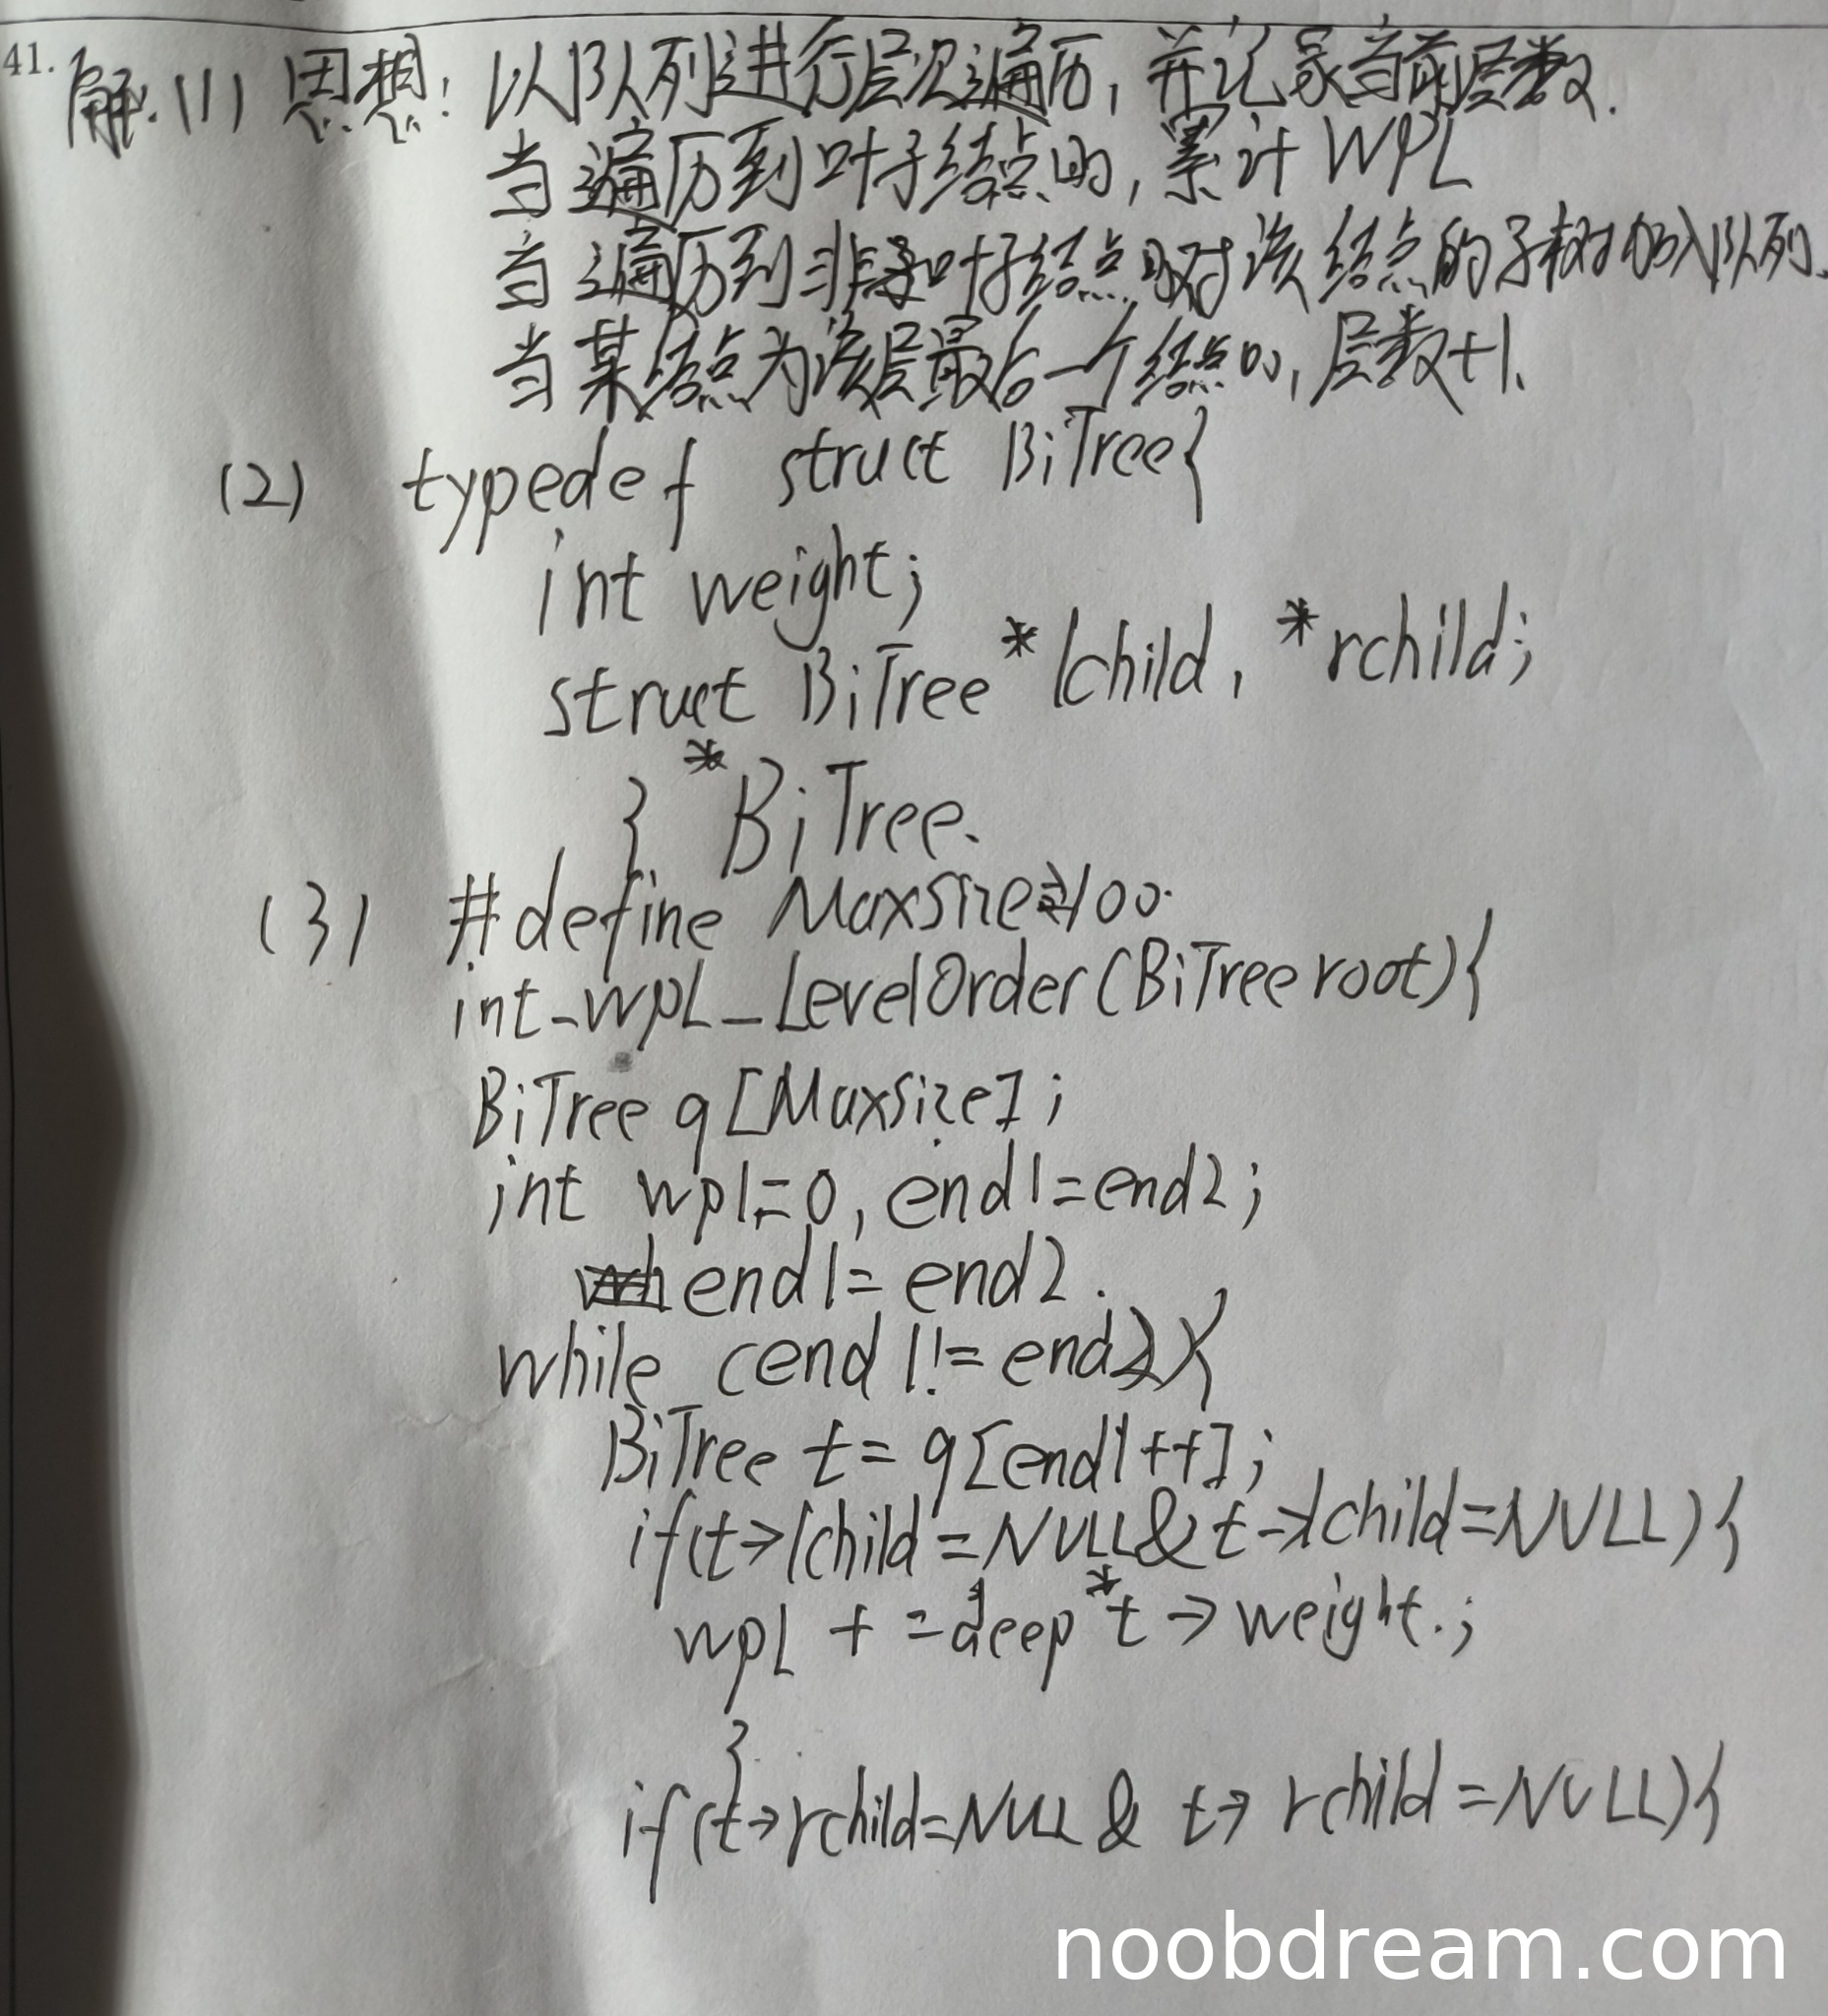 41. 解.(1) 思想: 以队列进行层次遍历, 并记录当前层数.
当遍历到叶子结点时, 累计 WPL
当遍历到非叶子结点时对该结点的子树加入队列.
当某结点为该层最后一个结点时, 层数+1.
(2) typedef struct BiTree{
int weight;
struct BiTree *lchild, *rchild;
} *BiTree.
(3) #define Maxsize 100.
int_wpL_LevelOrder(BiTree root){
BiTree q[Maxsize];
int wpl=0, end1=end2;
end1=end2.
while (end1!=end2){
BiTree t=q[end1++];
if(t->lchild=NULL&t->lchild=NULL){
wpL +=deep*t->weight.;
}
if(t->rchild=NULL & t-> rchild=NULL){
noobdream.com